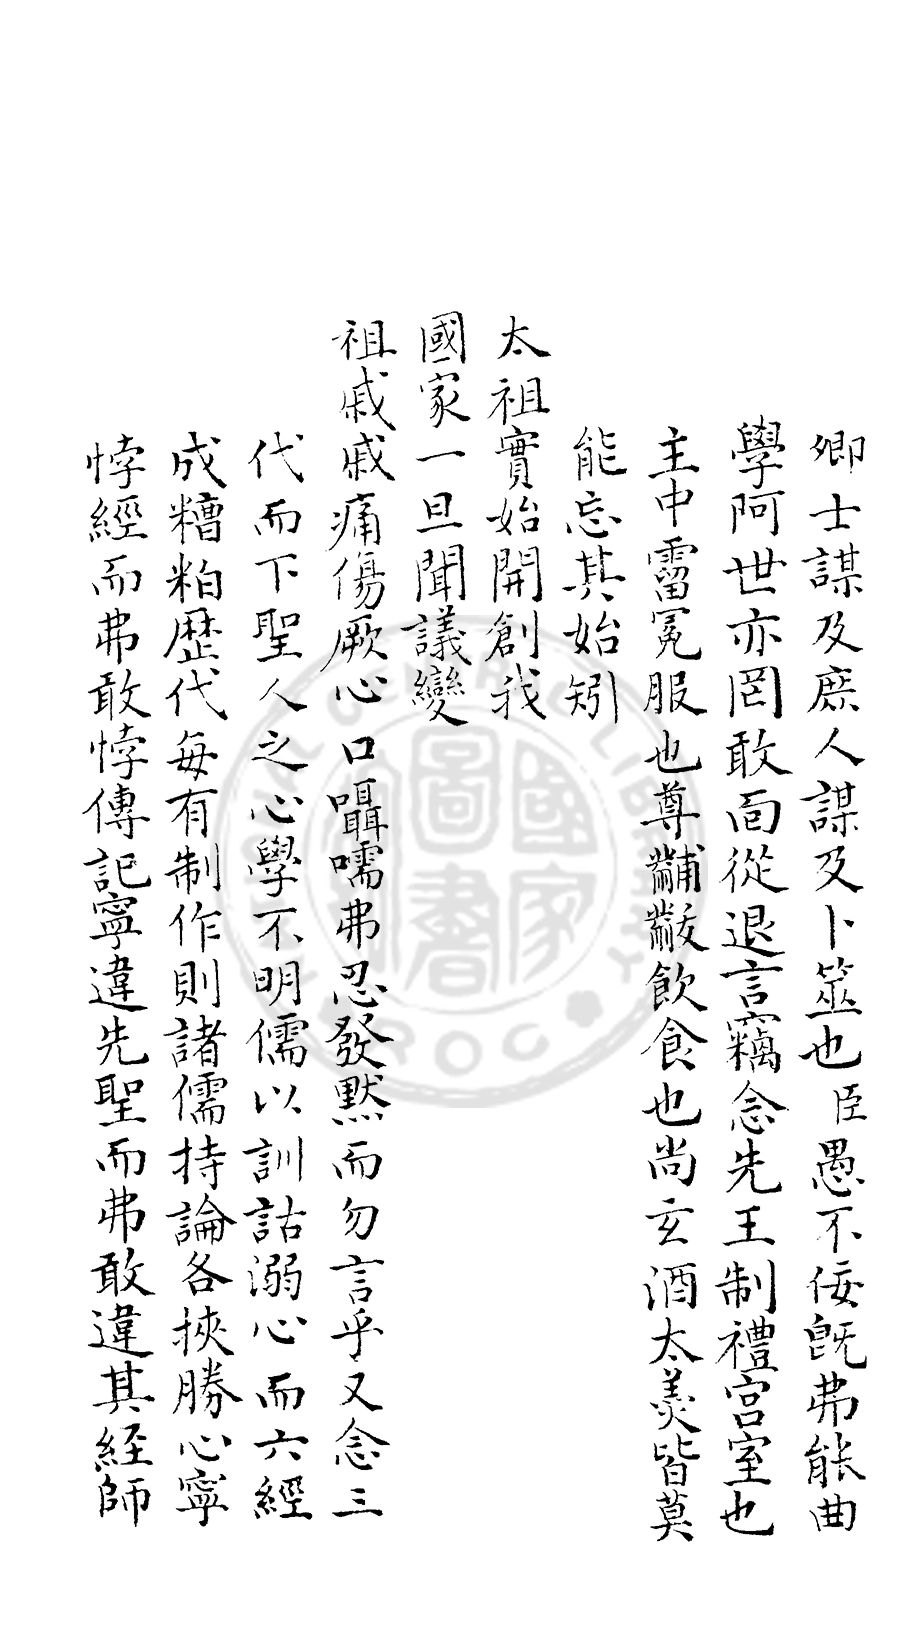 卿士謀及庶人謀及卜筮也臣愚不佞既弗能曲
學阿世亦罔敢面從退言竊念先王制禮宮室也
主中霤冕服也尊黼黻飲食也尚玄酒太羹皆莫
能忘其始矧
太祖實始開創我
國家一旦聞議變
祖戚戚痛傷厥心口囁嚅弗忍發默而勿言乎又念三
代而下聖人之心學不明儒以訓詁溺心而六經
成糟粕歷代每有制作則諸儒持論各挾勝心寧
悖經而弗敢悖傳記寧違先聖而弗敢違其経師